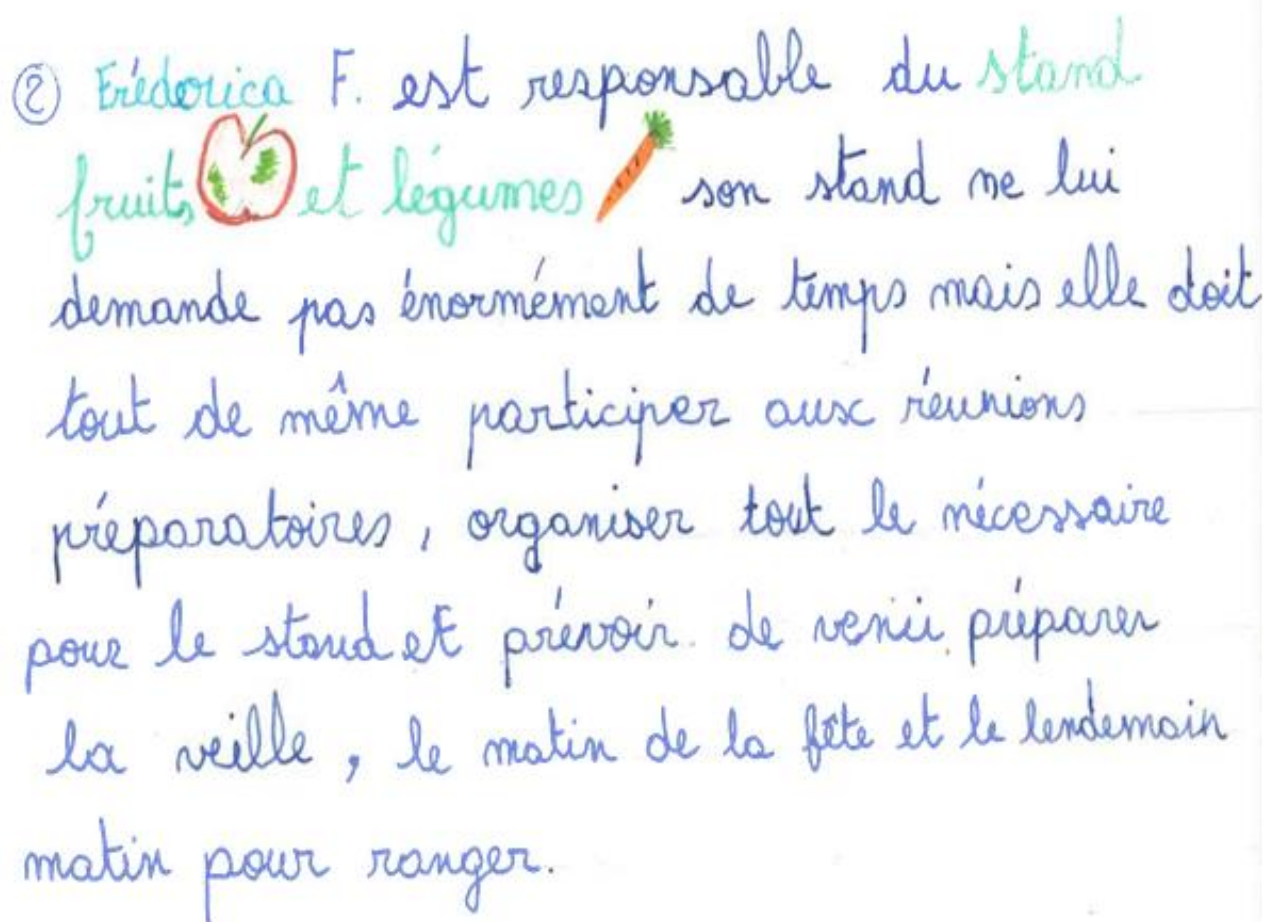 ② Frédorica F. est responsable du stand
fruits et légumes son stand ne lui
demande pas énormément de temps mais elle doit
tout de même participer aux réunions
préparatoires, organiser tout le nécessaire
pour le stand et prévoir de venir préparer
la veille, le matin de la fête et le lendemain
matin pour ranger.